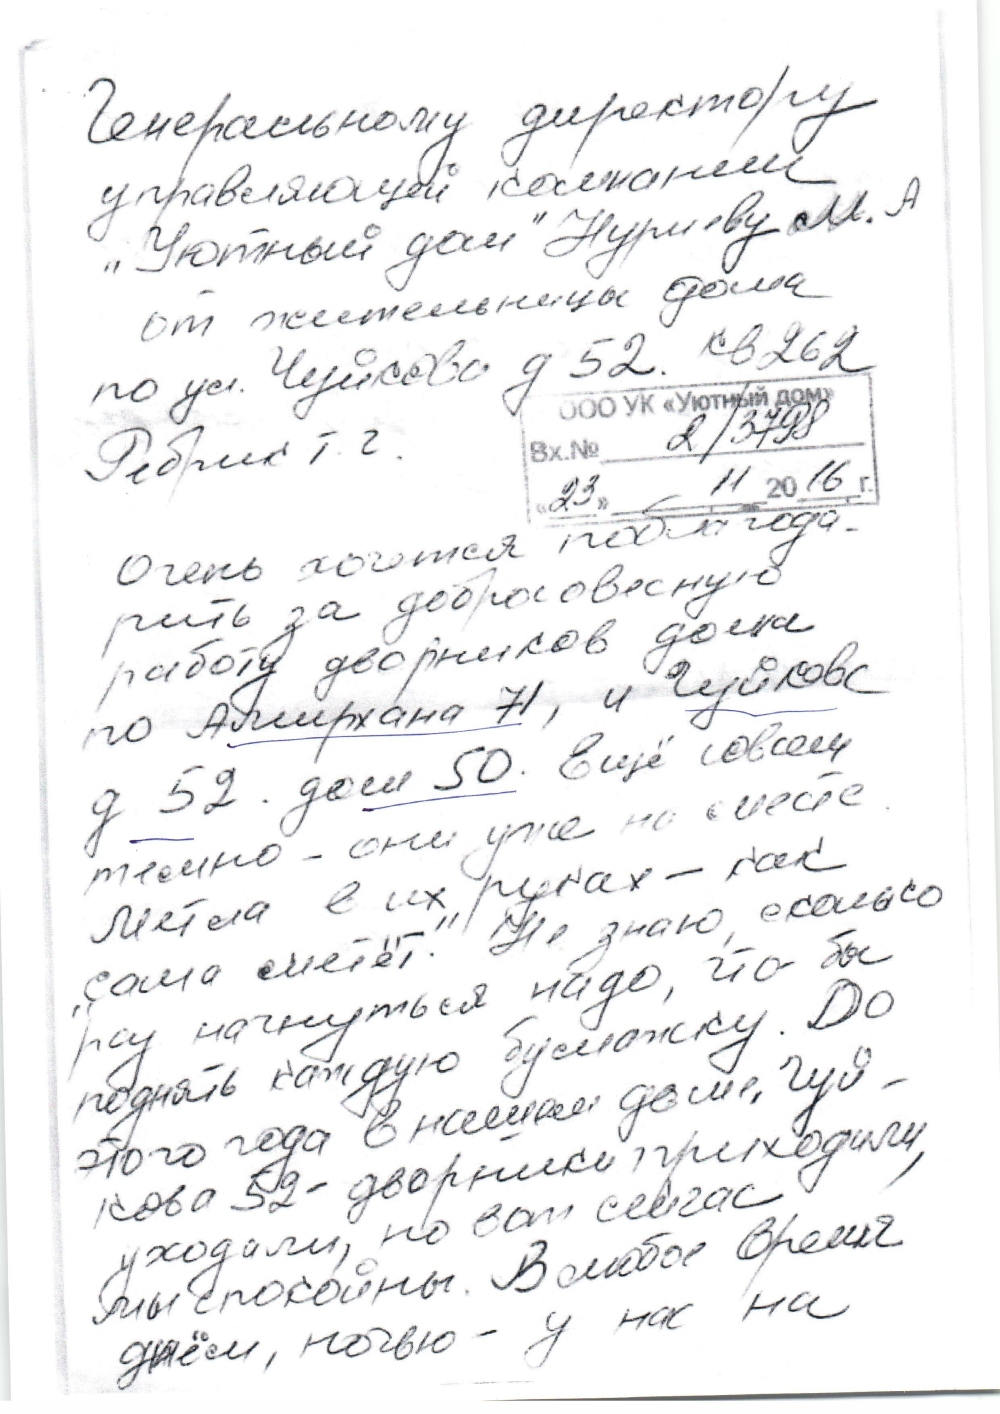 Генеральному директору
управляющей компании
„Уютный дом" Нуриеву М. А
от жительницы дома
по ул. Чуйкова д 52. кв 262
ООО УК «Уютный дом»
Ребрик Т. Г.
Вх.№ 2/3798
«23» 11 20 16 г.
Очень хочется поблагода-
рить за добросовесную
работу дворников дома
по Амирхана 71, и Чуйкова
д 52. дом 50. Ещё совсем
темно – они уже на месте.
Метла в их руках – как
"сама метёт." Не знаю, сколько
раз нагнуться надо, что бы
поднять каждую бумажку. До
этого года в нашем доме, Чуй-
кова 52 – дворники приходили,
уходили, но вот сейчас
мы спокойны. В любое время
днём, ночью – у нас на